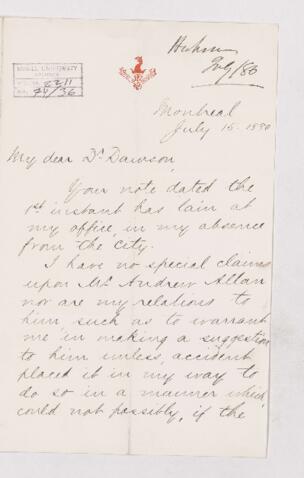 July/80
McGILL UNIVERSITY
ARCHIVES
ACC. NO. 2211
REF. 74/36
Montreal
July 15 - 1880
My dear Dr Dawson,
Your note dated the
1st instant has lain at
my office, in my absence
from the City.
I have no special claims
upon Mr Andrew Allan
nor are my relations to
him such as to warrant
me in making a suggestion
to him unless, accident
placed it in my way to
do so in a manner which
could not possibly, if the